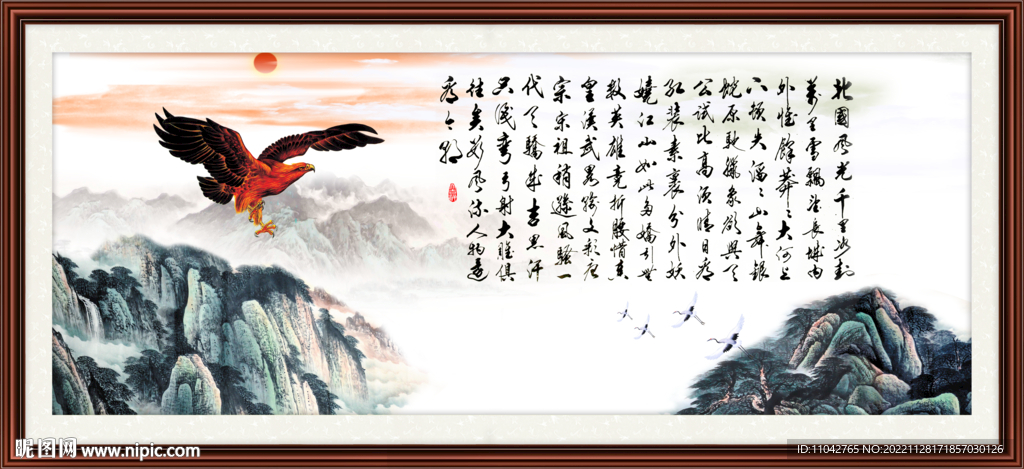 北國風光千里冰封
萬里雪飄望長城內
外惟餘莽〻大河上
下頓失滔〻山舞銀
蛇原馳蠟象欲與天
公試比高須晴日看
紅裝素裹分外妖
嬈江山如此多嬌引無
數英雄競折腰惜秦
皇漢武畧輸文彩唐
宗宋祖稍遜風騷一
代天驕成吉思汗
只識彎弓射大雕俱
往矣數風流人物還
看今朝
昵图网 www.nipic.com
ID:11042765 NO:20221128171857030126